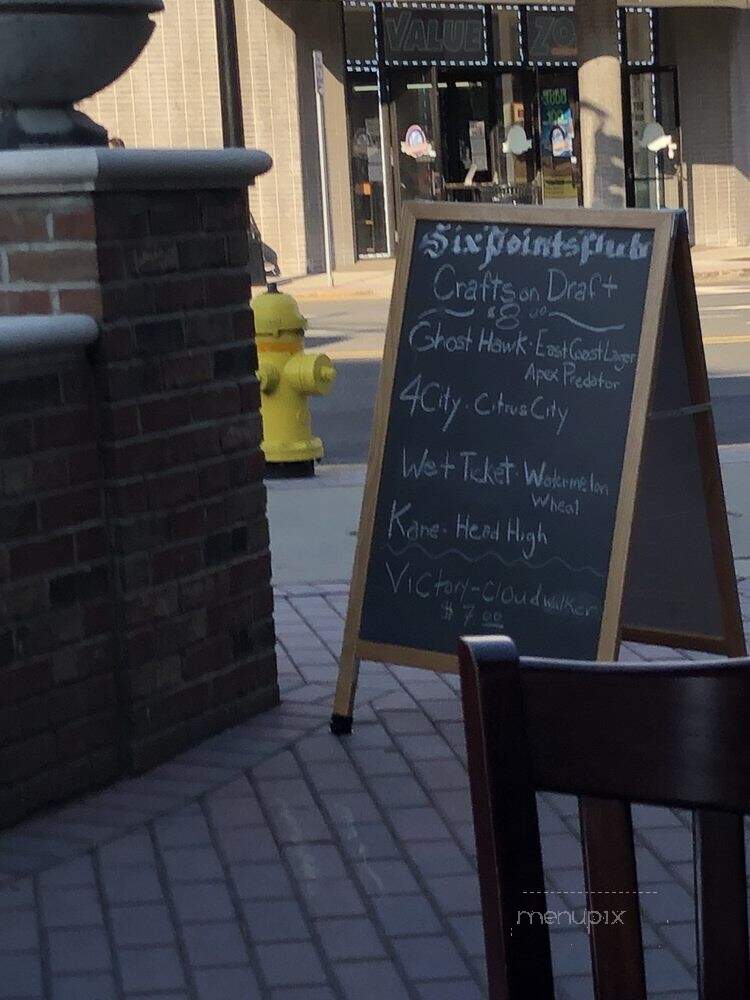 VALUE ZO
SixPointsPub
Crafts on Draft
$8.00
Ghost Hawk · East Coast Lager
Apex Predator
4City · Citrus City
Wet Ticket · Watermelon
Wheat
Kane - Head High
Victory - Cloudwalker
$7.00
menupix